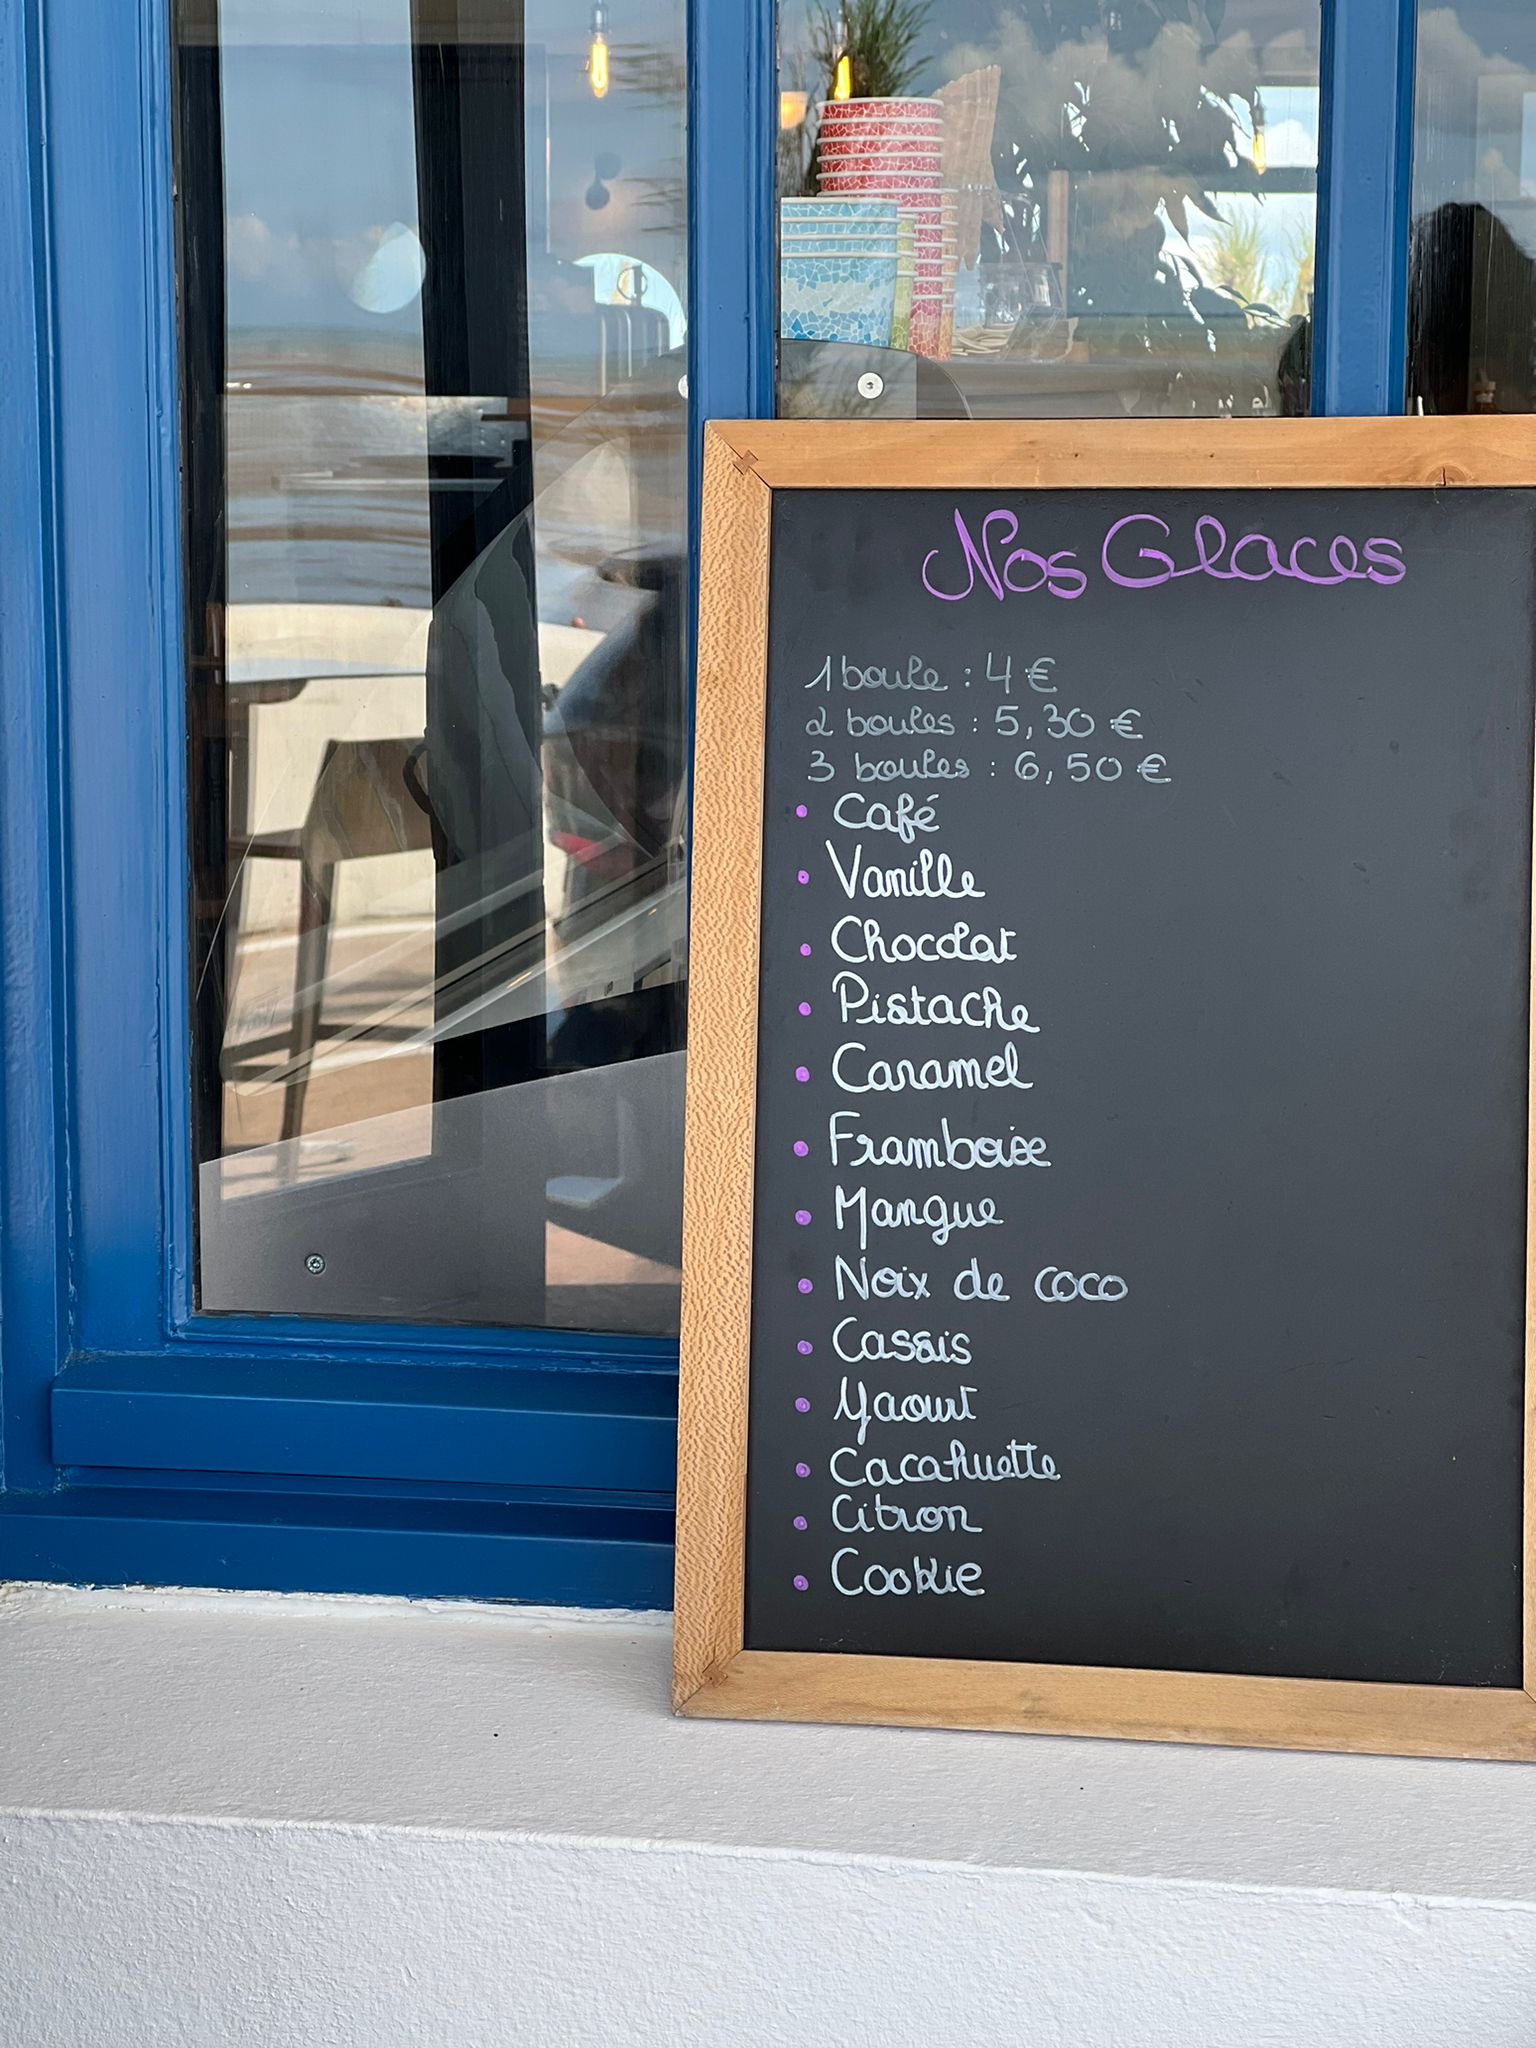 Nos Glaces
1 boule : 4 €
2 boules : 5,30 €
3 boules : 6,50 €
• Café
• Vanille
• Chocolat
• Pistache
• Caramel
• Framboise
• Mangue
• Noix de coco
• Cassis
• Yaourt
• Cacahuette
• Citron
• Cookie